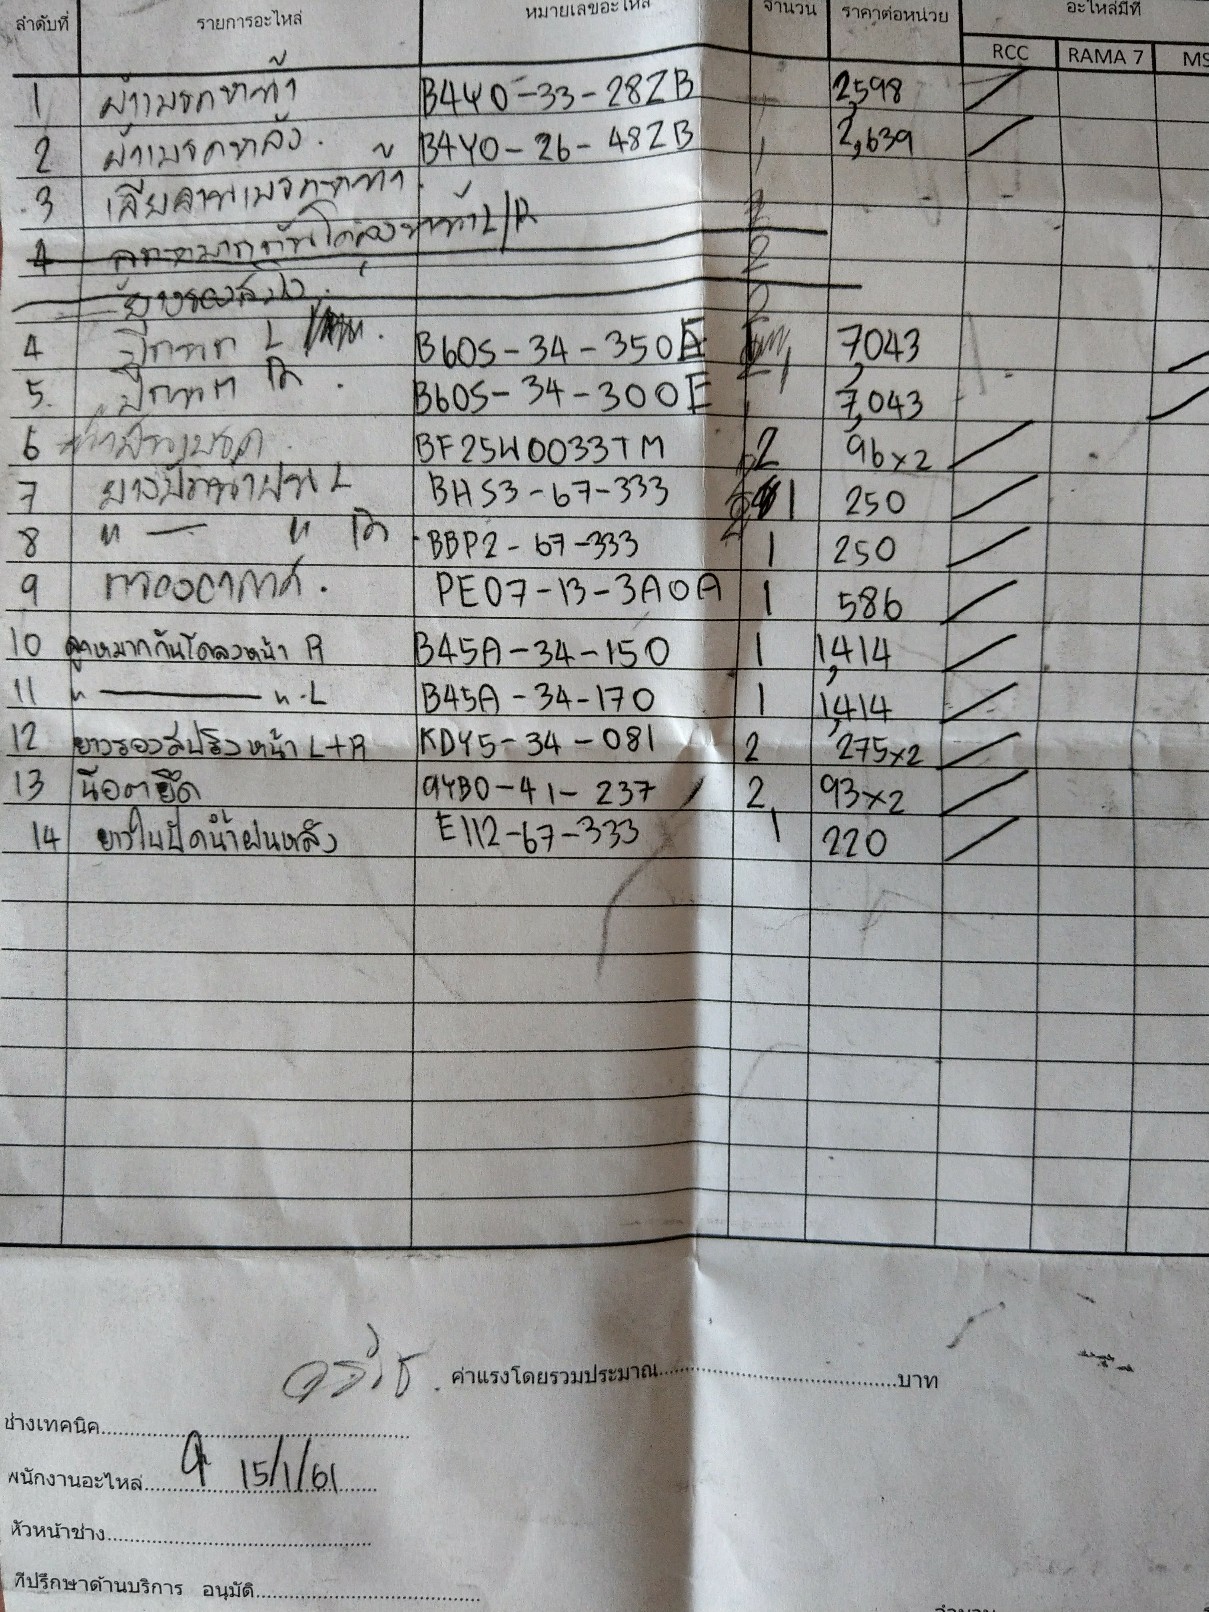 ลำดับที่ รายการอะไหล่ หมายเลขอะไหล่ จำนวน ราคาต่อหน่วย อะไหล่มีที่
RCC RAMA 7 MS
1 ผ้าเบรคหน้า B4Y0-33-28ZB 1 2,598
2 ผ้าเบรคหลัง B4Y0-26-48ZB 1 2,639
3 เจียจานเบรคหน้า
4 ลูกหมากกันโคลงหน้า L/R 2
ยางรองสปริง 2
4 ปีกนก L B60S-34-350E 1 7043
5. ปีกนก R B60S-34-300E 1 7,043
6 น้ำมันเบรค BF25W0033TM 2 96x2
7 ยางปัดน้ำฝน L BHS3-67-333 1 250
8 " — " R BBP2-67-333 1 250
9 กรองอากาศ. PE07-13-3A0A 1 586
10 ลูกหมากกันโคลงหน้า R B45A-34-150 1 1,414
11 " — " L B45A-34-170 1 1,414
12 ยางรองสปริงหน้า L+R KDY5-34-081 2 275x2
13 น๊อตยึด 9YB0-41-237 2 93x2
14 ยางใบปัดน้ำฝนหลัง E112-67-333 1 220
ค่าแรงโดยรวมประมาณ..........บาท
ช่างเทคนิค..........
พนักงานอะไหล่.......... 15/1/61
หัวหน้าช่าง..........
ที่ปรึกษาด้านบริการ อนุมัติ..........
จำนวน